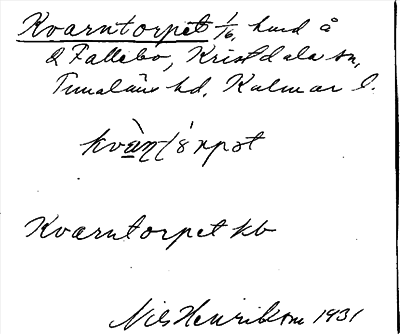 Kvarntorpet 1/6, hmd å
Q Fallebo, Kristdala sn,
Tunaläns hd, Kalmar l.
Kvarntorpet kb
Nils Henrikson 1931